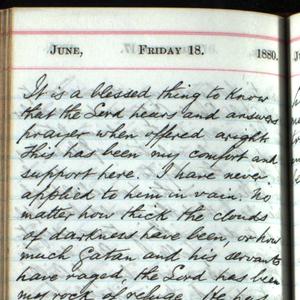 June, Friday 18. 1880.
It is a blessed thing to know
that the Lord hears and answers
prayer when offered aright.
This has been my comfort and
support here. I have never
applied to him in vain. No
matter how thick the clouds
of darkness have been, or how
much Satan and his servants
have raged, the Lord has been
my rock of refuge. He has